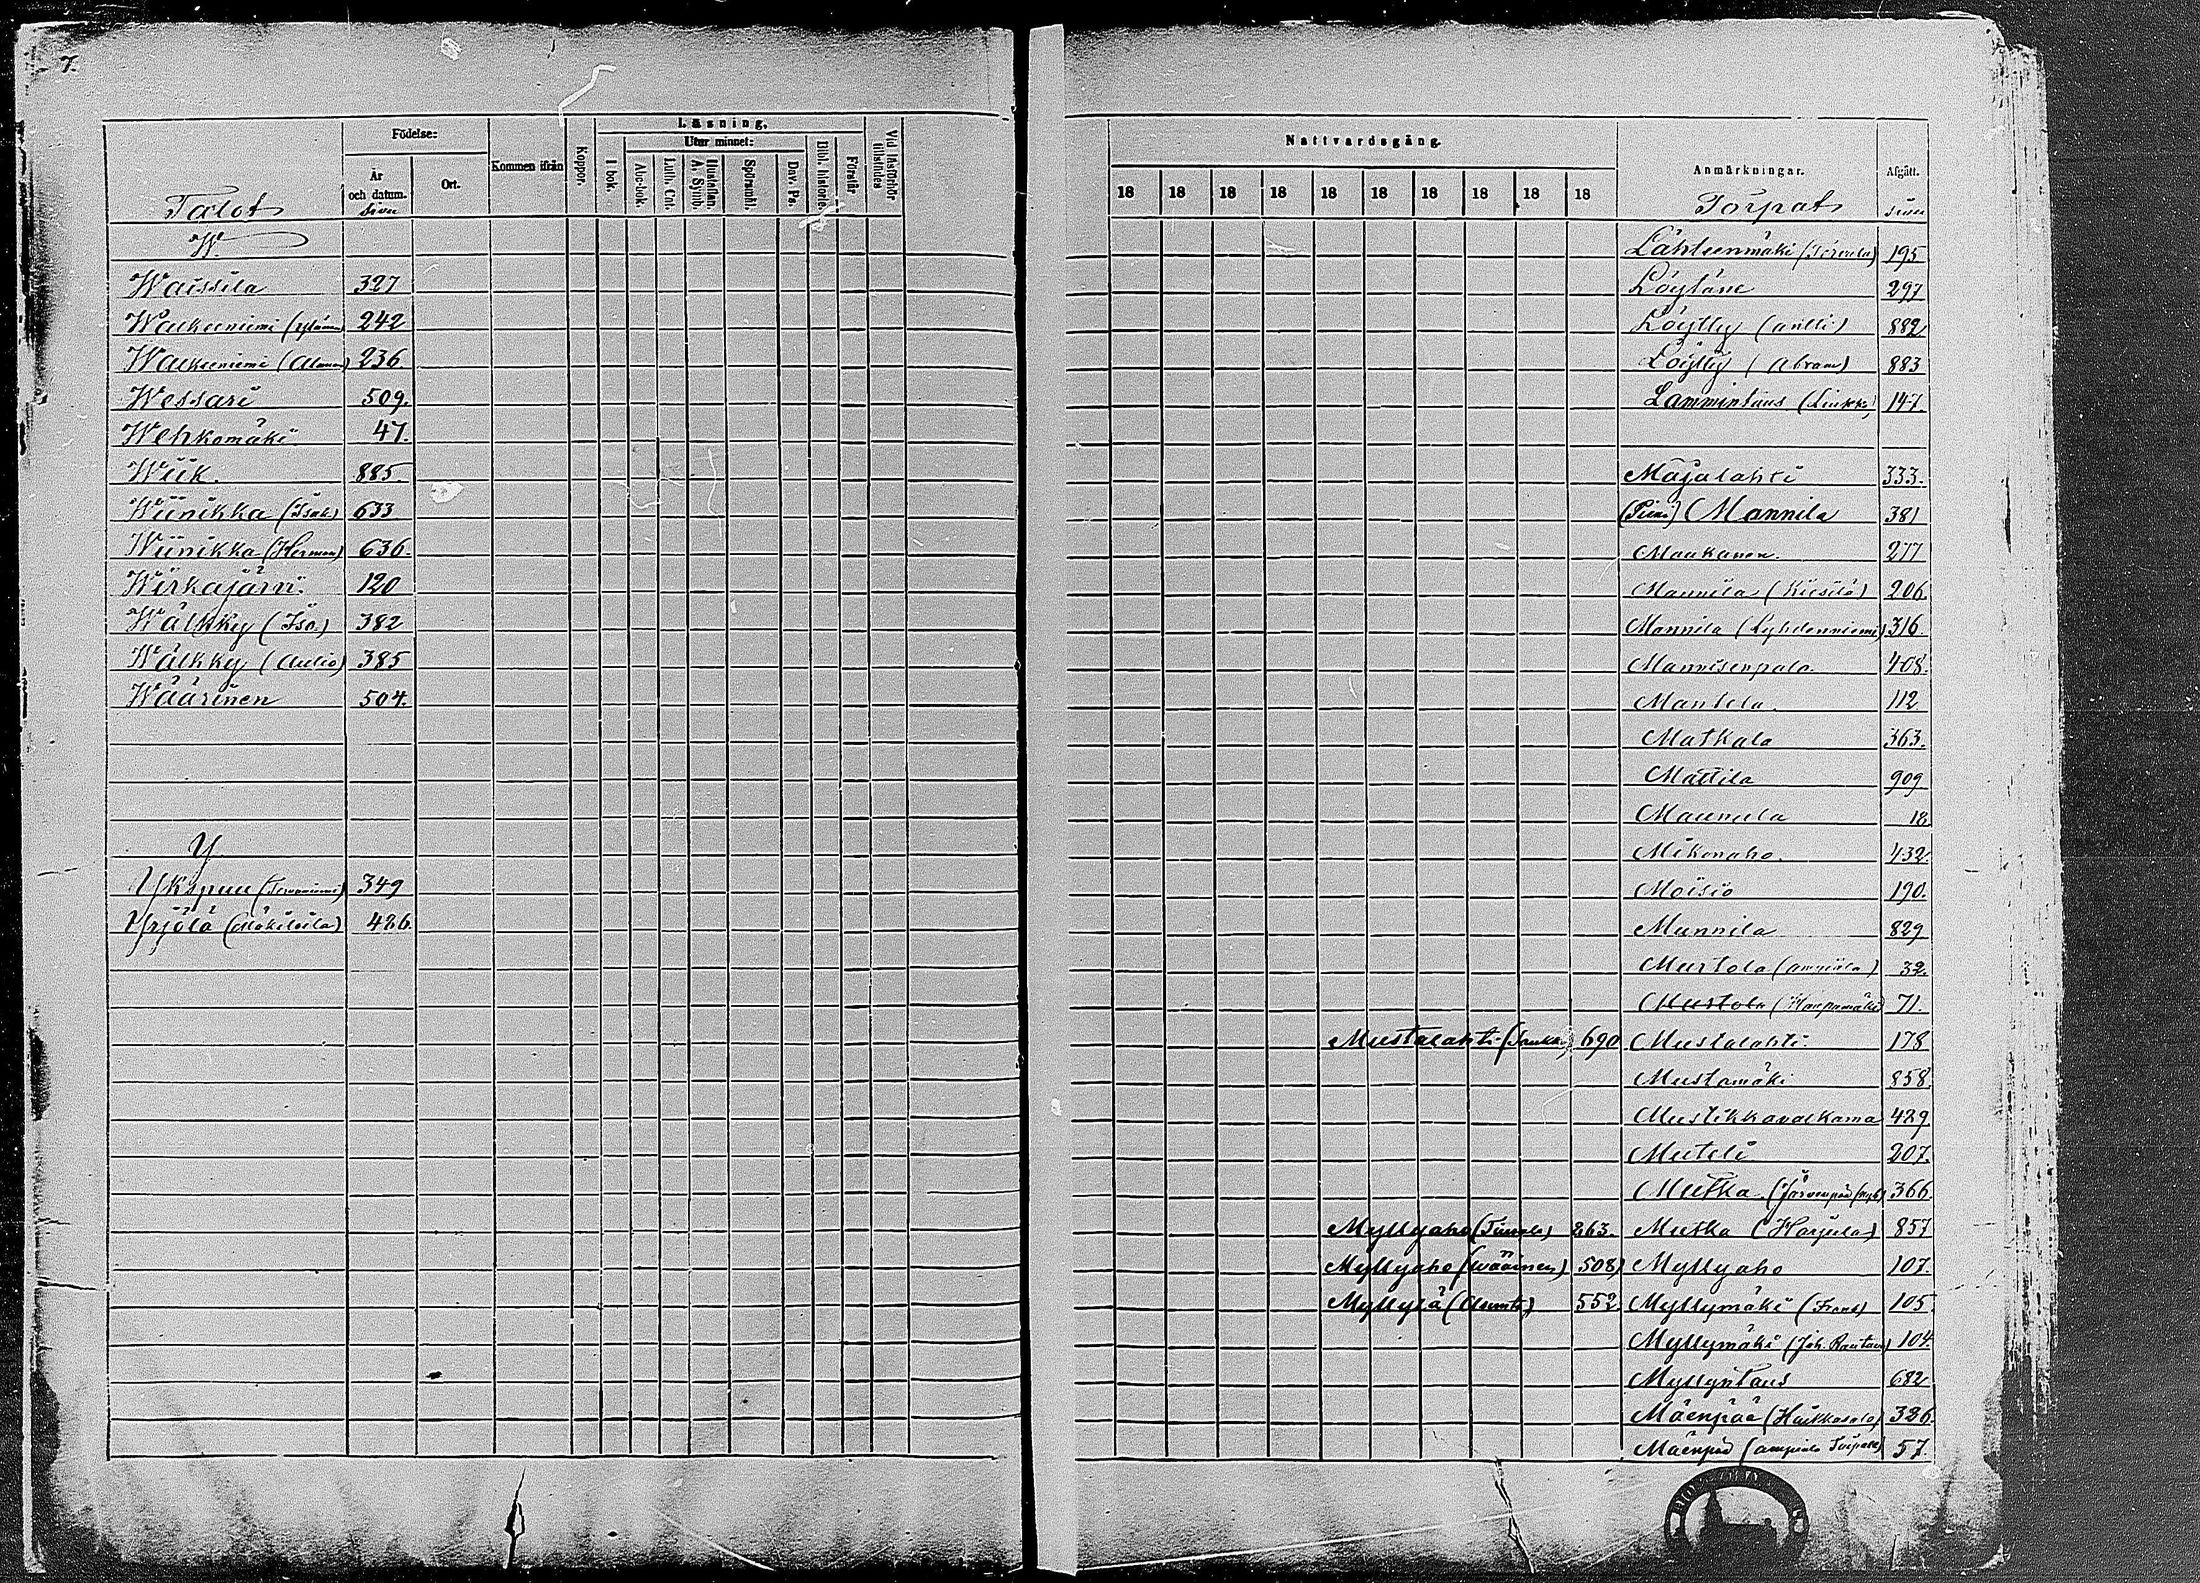 7.
Födelse:
Läsning.
Utur minnet:
År och datum.
Ort.
Kommen ifrån
Koppor.
I bok.
Abc-bok.
Luth. Cat.
Hustaflan. A. Symb.
Spörsmål.
Dav. Ps.
Bibl. historie.
Förstår
Vid läseförhör tillstädes
Talot
Sivu
W.
Waissila 327
Walkeeniemi (Ylänen) 242
Walkeeniemi (Alanen) 236.
Wessari 509.
Wehkomäki 47.
Wiik. 885.
Wiinikka (Isak) 633
Wiinikka (Herman) 636.
Wirkajärvi. 120
Wälkky (Iso) 382
Wälkky (Aulio) 385
Wäärinen 504.
Y
Ykspuu (Tervaniemi) 349
Yrjölä (Mäkiloila) 486.
Nattvardsgång.
18 18 18 18 18 18 18 18 18 18
Anmärkningar.
Afgått.
Torpat
Sivu
Lähteenmäki 195
Löytäne 297
Löylly (Antti) 882
Löylly (Abram) 883
Lammintaus (Liukko) 147.
Majalahti 333.
(Pieni) Mannila 381
Maukanen. 277
Mannila (Kiesilä) 206.
Mannila (Lyhdenniemi) 316.
Mannisenpalo. 408.
Mantela. 112
Matkala 363.
Mattila 909.
Maunula 18
Mikonaho. 432.
Moisio 190.
Munnila 829
Murtola (Ampiala) 32.
Mustola (Haapamäki) 71.
Mustalahti (Laukko) 690 Mustalahti 178
Mustamäki 858.
Mustikkavalkama 429.
Muteli 207.
Mutka (Järvenpää) 366.
Myllyaho 263. Mutka (Harjula) 857
Myllyaho (Wäärinen) 508) Myllyaho 107.
Myllylä (Asunta) 552. Myllymäki (Frans) 105.
Myllymäki (Joh. Rautanen) 104.
Myllyntaus 682
Mäenpää (Huikkasalo) 386.
Mäenpää (Ampiala Torpat) 57.